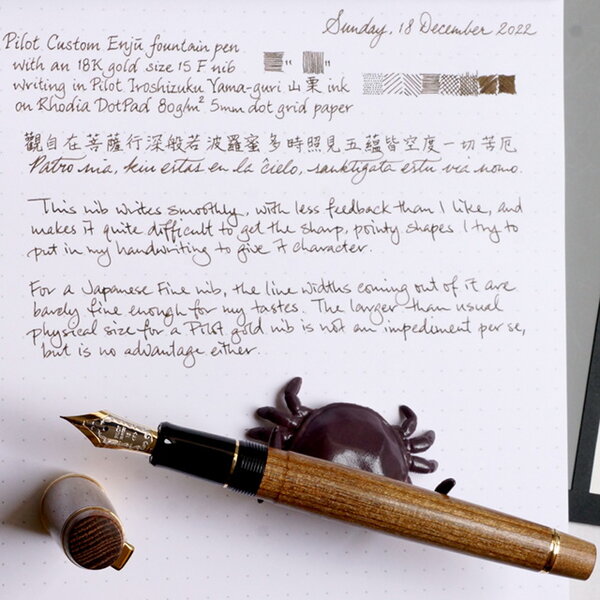 Sunday, 18 December 2022
Pilot Custom Enjū fountain pen
with an 18K gold size 15 F nib
writing in Pilot Iroshizuku Yama-guri 山栗 ink
on Rhodia DotPad 80g/m² 5mm dot grid paper
觀自在菩薩行深般若波羅蜜多時照見五蘊皆空度一切苦厄
Patro nia, kiu estas en la ĉielo, sanktigata estu via nomo.
This nib writes smoothly, with less feedback than I like, and
makes it quite difficult to get the sharp, pointy shapes I try to
put in my handwriting to give it character.
For a Japanese Fine nib, the line widths coming out of it are
barely fine enough for my tastes. The larger than usual
physical size for a Pilot gold nib is not an impediment per se,
but is no advantage either.